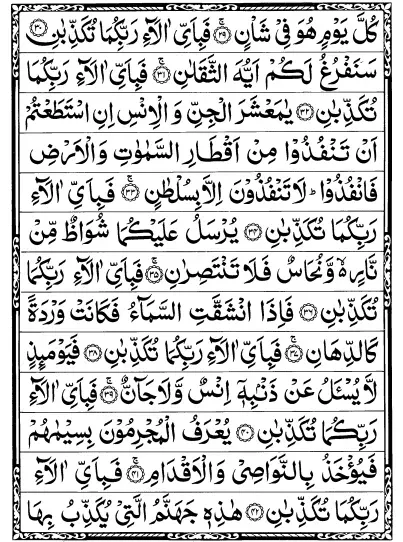 كُلَّ يَوْمٍ هُوَ فِيْ شَاْنٍ ۚ ﴿۲۹﴾ فَبِاَيِّ اٰلَآءِ رَبِّكُمَا تُكَذِّبٰنِ ﴿۳۰﴾
سَنَفْرُغُ لَكُمْ اَيُّهَ الثَّقَلٰنِ ۚ ﴿۳۱﴾ فَبِاَيِّ اٰلَآءِ رَبِّكُمَا
تُكَذِّبٰنِ ﴿۳۲﴾ يٰمَعْشَرَ الْجِنِّ وَ الْاِنْسِ اِنِ اسْتَطَعْتُمْ
اَنْ تَنْفُذُوْا مِنْ اَقْطَارِ السَّمٰوٰتِ وَ الْاَرْضِ
فَانْفُذُوْا ؕ لَا تَنْفُذُوْنَ اِلَّا بِسُلْطٰنٍ ۚ ﴿۳۳﴾ فَبِاَيِّ اٰلَآءِ
رَبِّكُمَا تُكَذِّبٰنِ ﴿۳۴﴾ يُرْسَلُ عَلَيْكُمَا شُوَاظٌ مِّنْ
نَّارٍ ۙ۬ وَّ نُحَاسٌ فَلَا تَنْتَصِرٰنِ ۚ ﴿۳۵﴾ فَبِاَيِّ اٰلَآءِ رَبِّكُمَا
تُكَذِّبٰنِ ﴿۳۶﴾ فَاِذَا انْشَقَّتِ السَّمَآءُ فَكَانَتْ وَرْدَةً
كَالدِّهَانِ ۚ ﴿۳۷﴾ فَبِاَيِّ اٰلَآءِ رَبِّكُمَا تُكَذِّبٰنِ ﴿۳۸﴾ فَيَوْمَئِذٍ
لَّا يُسْـَٔلُ عَنْ ذَنْۢبِهٖۤ اِنْسٌ وَّ لَا جَآنٌّ ۚ ﴿۳۹﴾ فَبِاَيِّ اٰلَآءِ
رَبِّكُمَا تُكَذِّبٰنِ ﴿۴۰﴾ يُعْرَفُ الْمُجْرِمُوْنَ بِسِيْمٰهُمْ
فَيُؤْخَذُ بِالنَّوَاصِيْ وَ الْاَقْدَامِ ۚ ﴿۴۱﴾ فَبِاَيِّ اٰلَآءِ
رَبِّكُمَا تُكَذِّبٰنِ ﴿۴۲﴾ هٰذِهٖ جَهَنَّمُ الَّتِيْ يُكَذِّبُ بِهَا